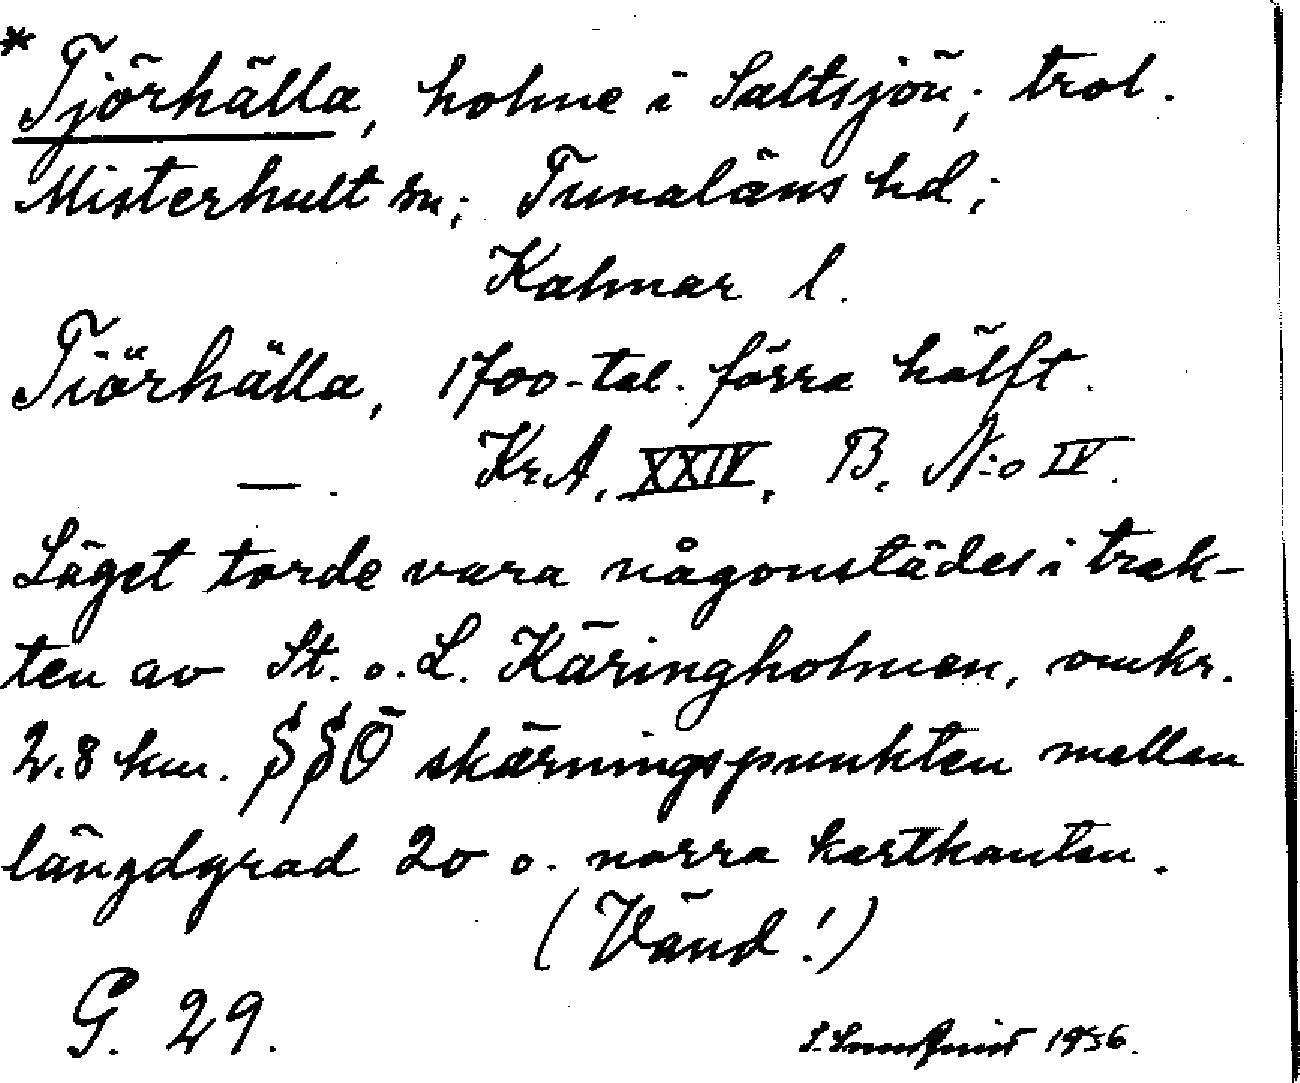 * Tjörhälla, holme i Saltsjön; trol.
Misterhult sn; Tunaläns hd;
Kalmar l.
Tiörhälla, 1700-tal. förra hälft.
— . Kr.A. XXIV, B. N:o IV.
Läget torde vara någonstädes i trak-
ten av St. o. L. Käringholmen, omkr.
2.8 km. SSÖ skärningspunkten mellan
längdgrad 20 o. norra kartkanten.
(Vänd!)
G. 29.
1956.